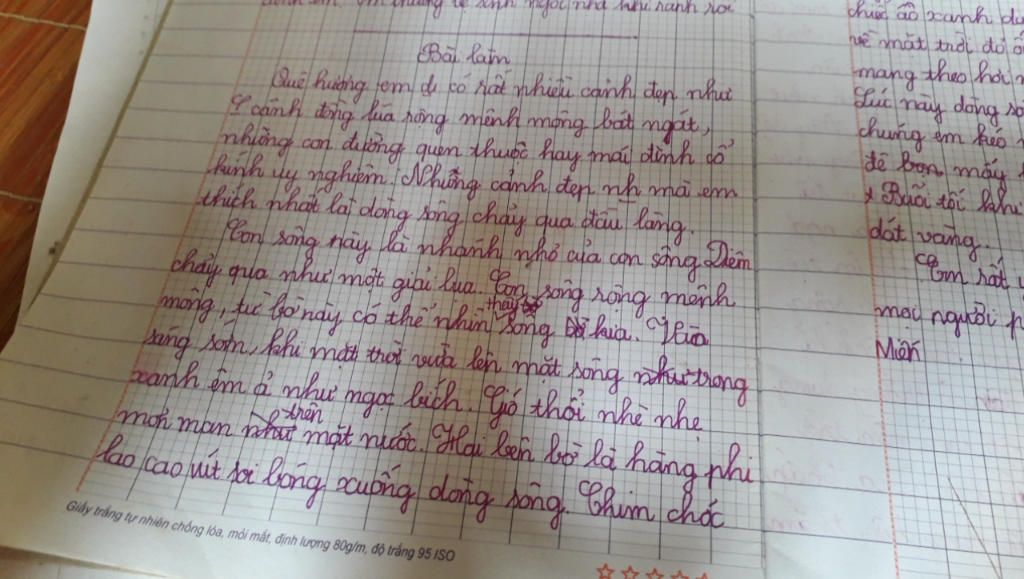 Bài làm
Quê hương em đi có rất nhiều cảnh đẹp như
cánh đồng lúa rộng mênh mông bát ngát,
những con đường quen thuộc hay mái đình cổ
kính uy nghiêm. Những cảnh đẹp nh mà em
thích nhất là dòng sông chảy qua đầu làng.
Con sông này là nhánh nhỏ của con sông Diêm
chảy qua như một giải lụa. Con sông rộng mênh
mông, từ bờ này có thể nhìn thấy sông bờ kia. Vào
sáng sớm, khi mặt trời vừa lên mặt sông như trong
xanh êm ả như ngọc bích. Gió thổi nhè nhẹ
mơn man như trên mặt nước. Hai bên bờ là hàng phi
lao cao vút soi bóng xuống dòng sông. Chim chóc
Giấy trắng tự nhiên chống lóa, mỏi mắt, định lượng 80g/m, độ trắng 95 ISO
chiếc áo xanh
về mặt trời đỏ
mang theo hơi
Lúc này dòng
chúng em kéo
để bơi mấy
Buổi tối khi
dát vàng.
Em rất
mọi người
Miến